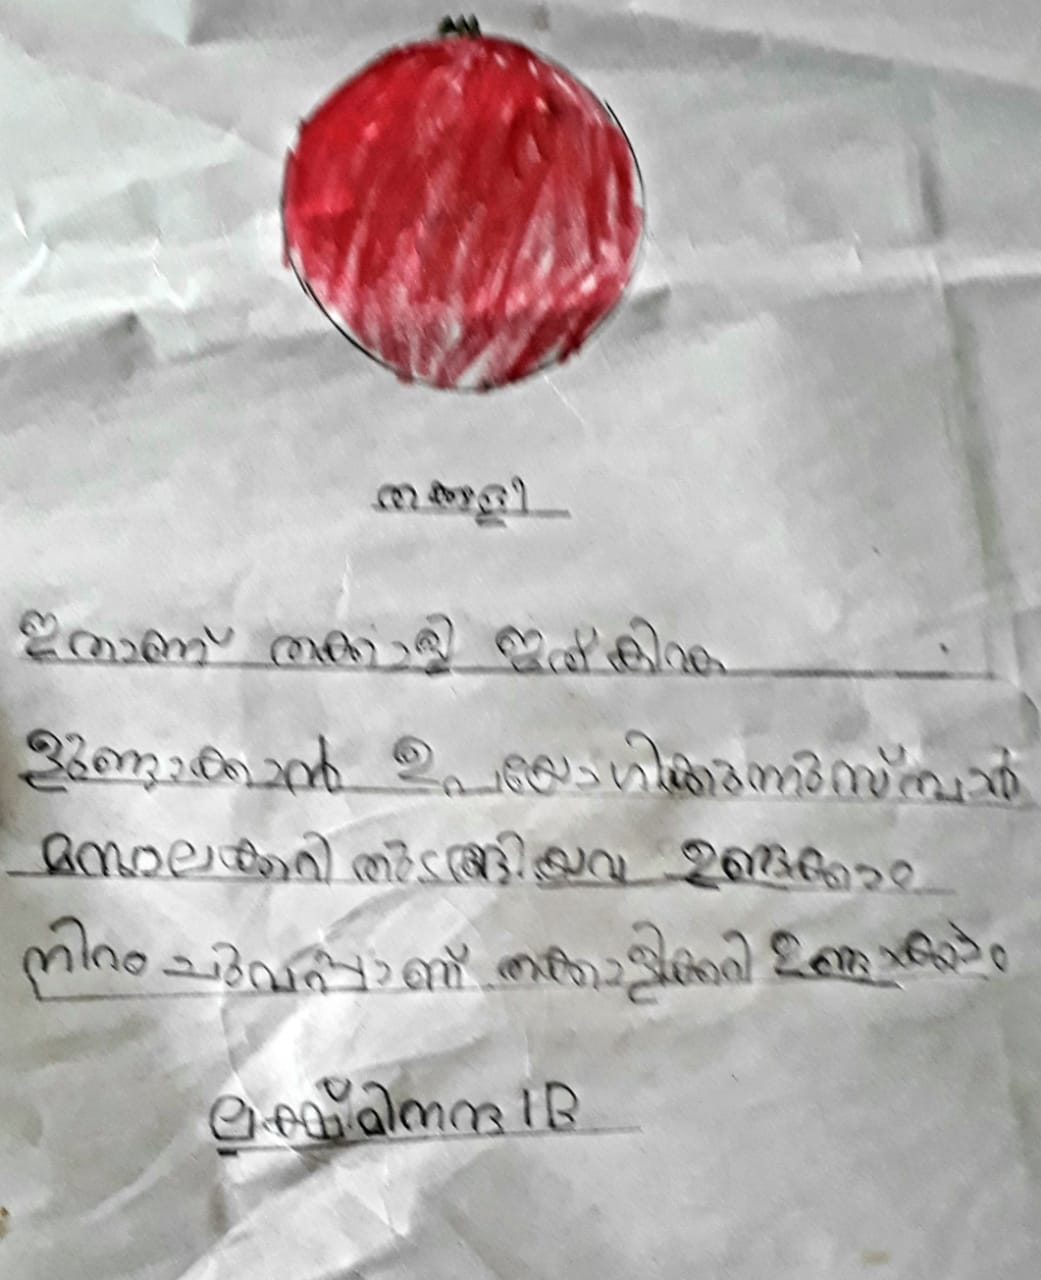 തക്കാളി
ഇതാണ് തക്കാളി ഇത് കിറക
ളുണ്ടാക്കാൻ ഉപയോഗിക്കുന്നു സ്സ്ബാർ
മസാലക്കറി തുടങ്ങിയവ ഉണ്ടക്കാം
നിറം ചുവപ്പാണ് തക്കാളിക്കറി ഉണ്ടാക്കാം
ലക്ഷ്മിനന്ദ 1B